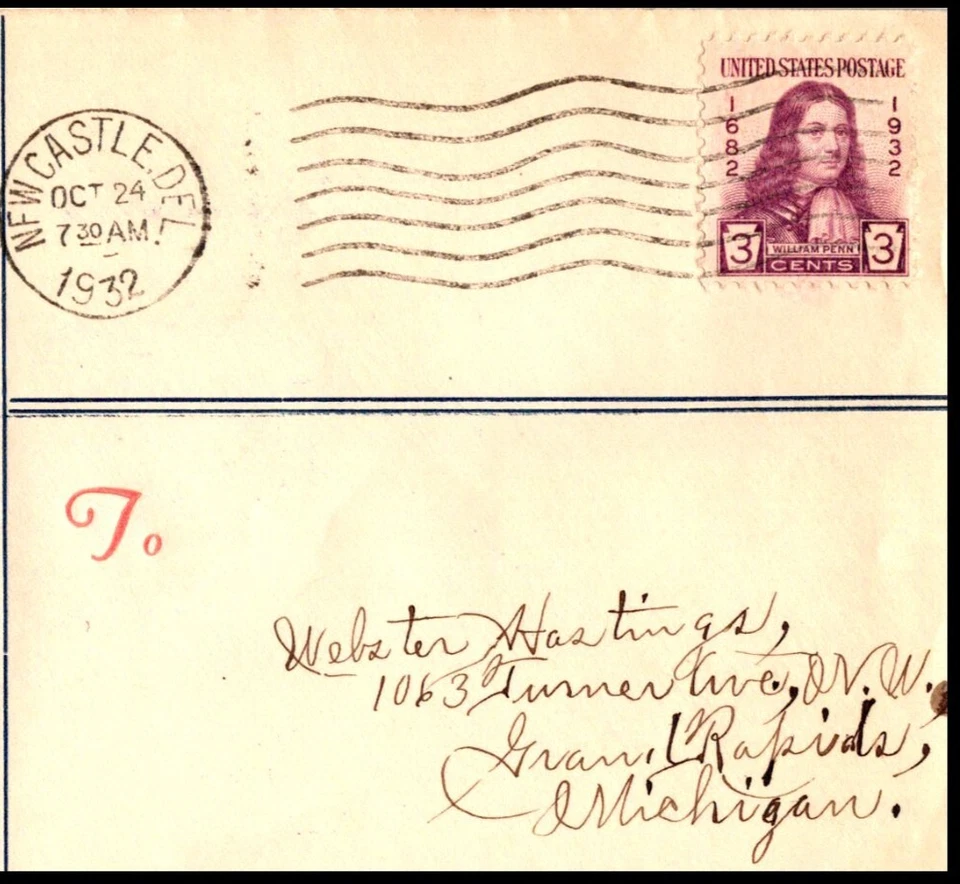 NEW CASTLE, DEL
OCT 24
7 30 AM.
1932
UNITED STATES POSTAGE
1682
1932
3
WILLIAM PENN
3
CENTS
To
Webster Hastings,
1063 Turner Ave., N.W.
Grand Rapids,
Michigan.